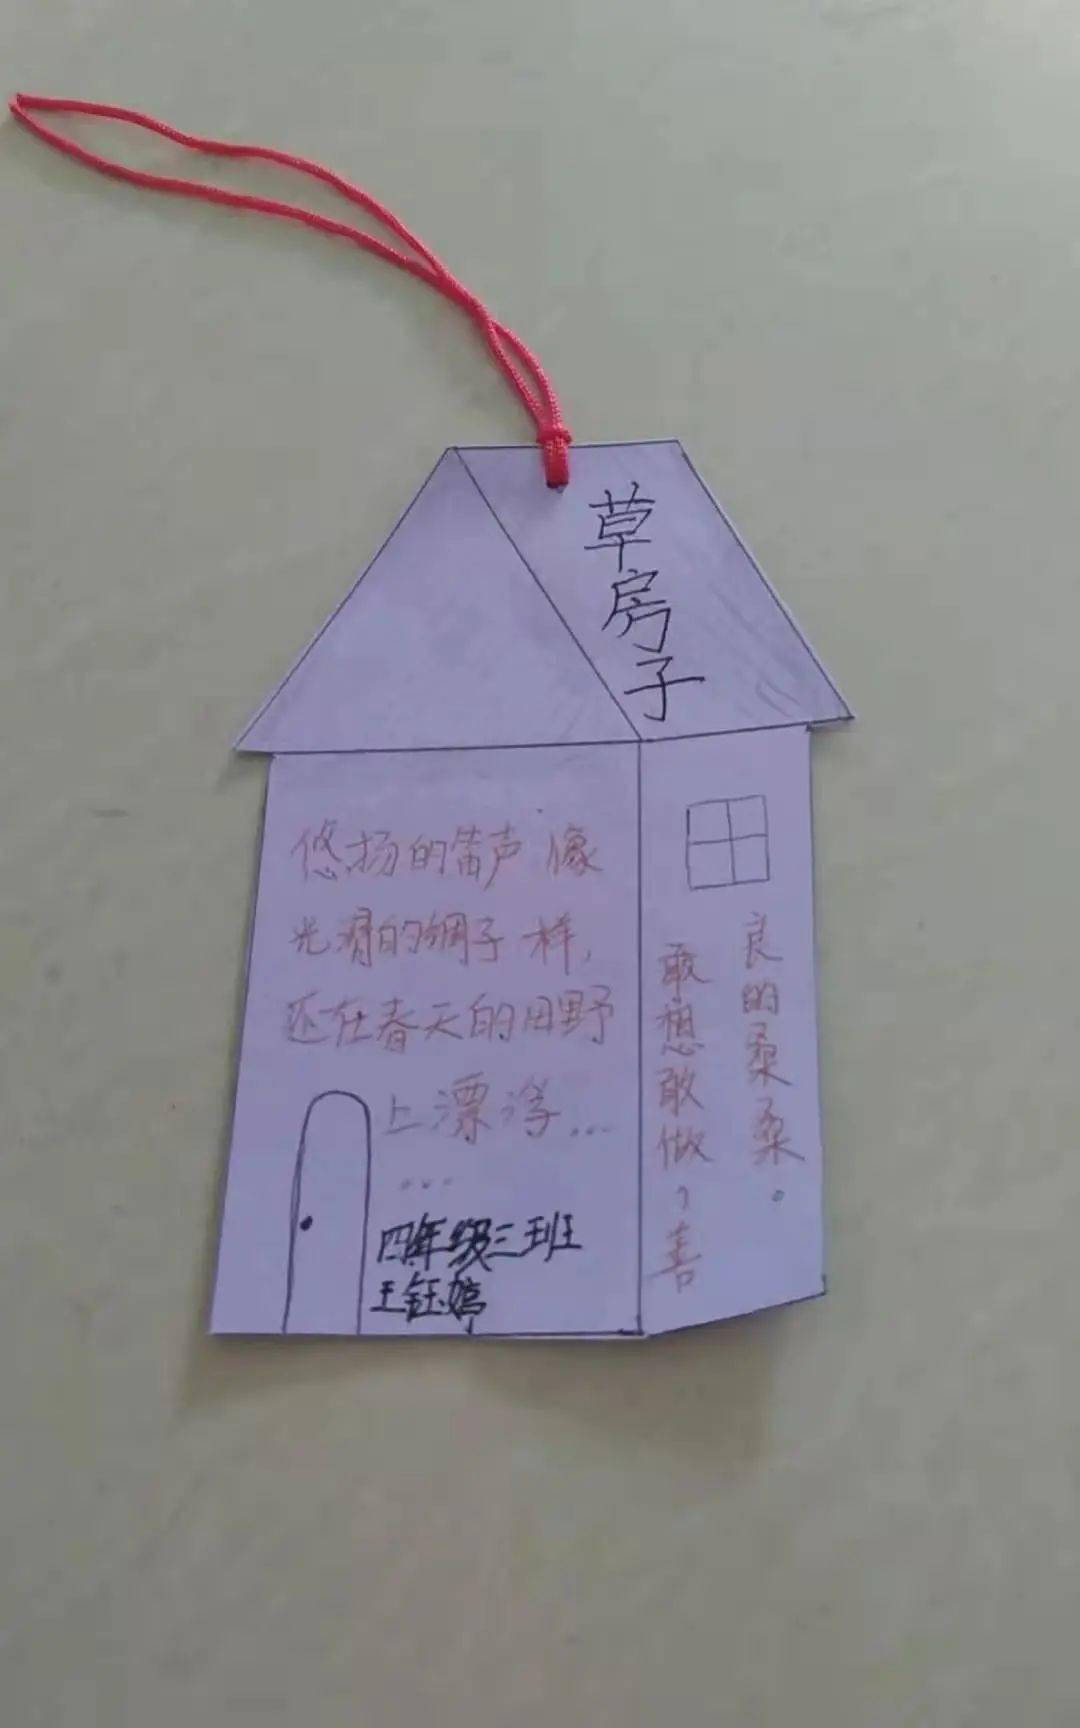 草房子
悠扬的笛声像
光滑的绸子样，
还在春天的田野
上漂浮…
…
四年级三班
王钰婷
敢想敢做，善
良的桑桑。